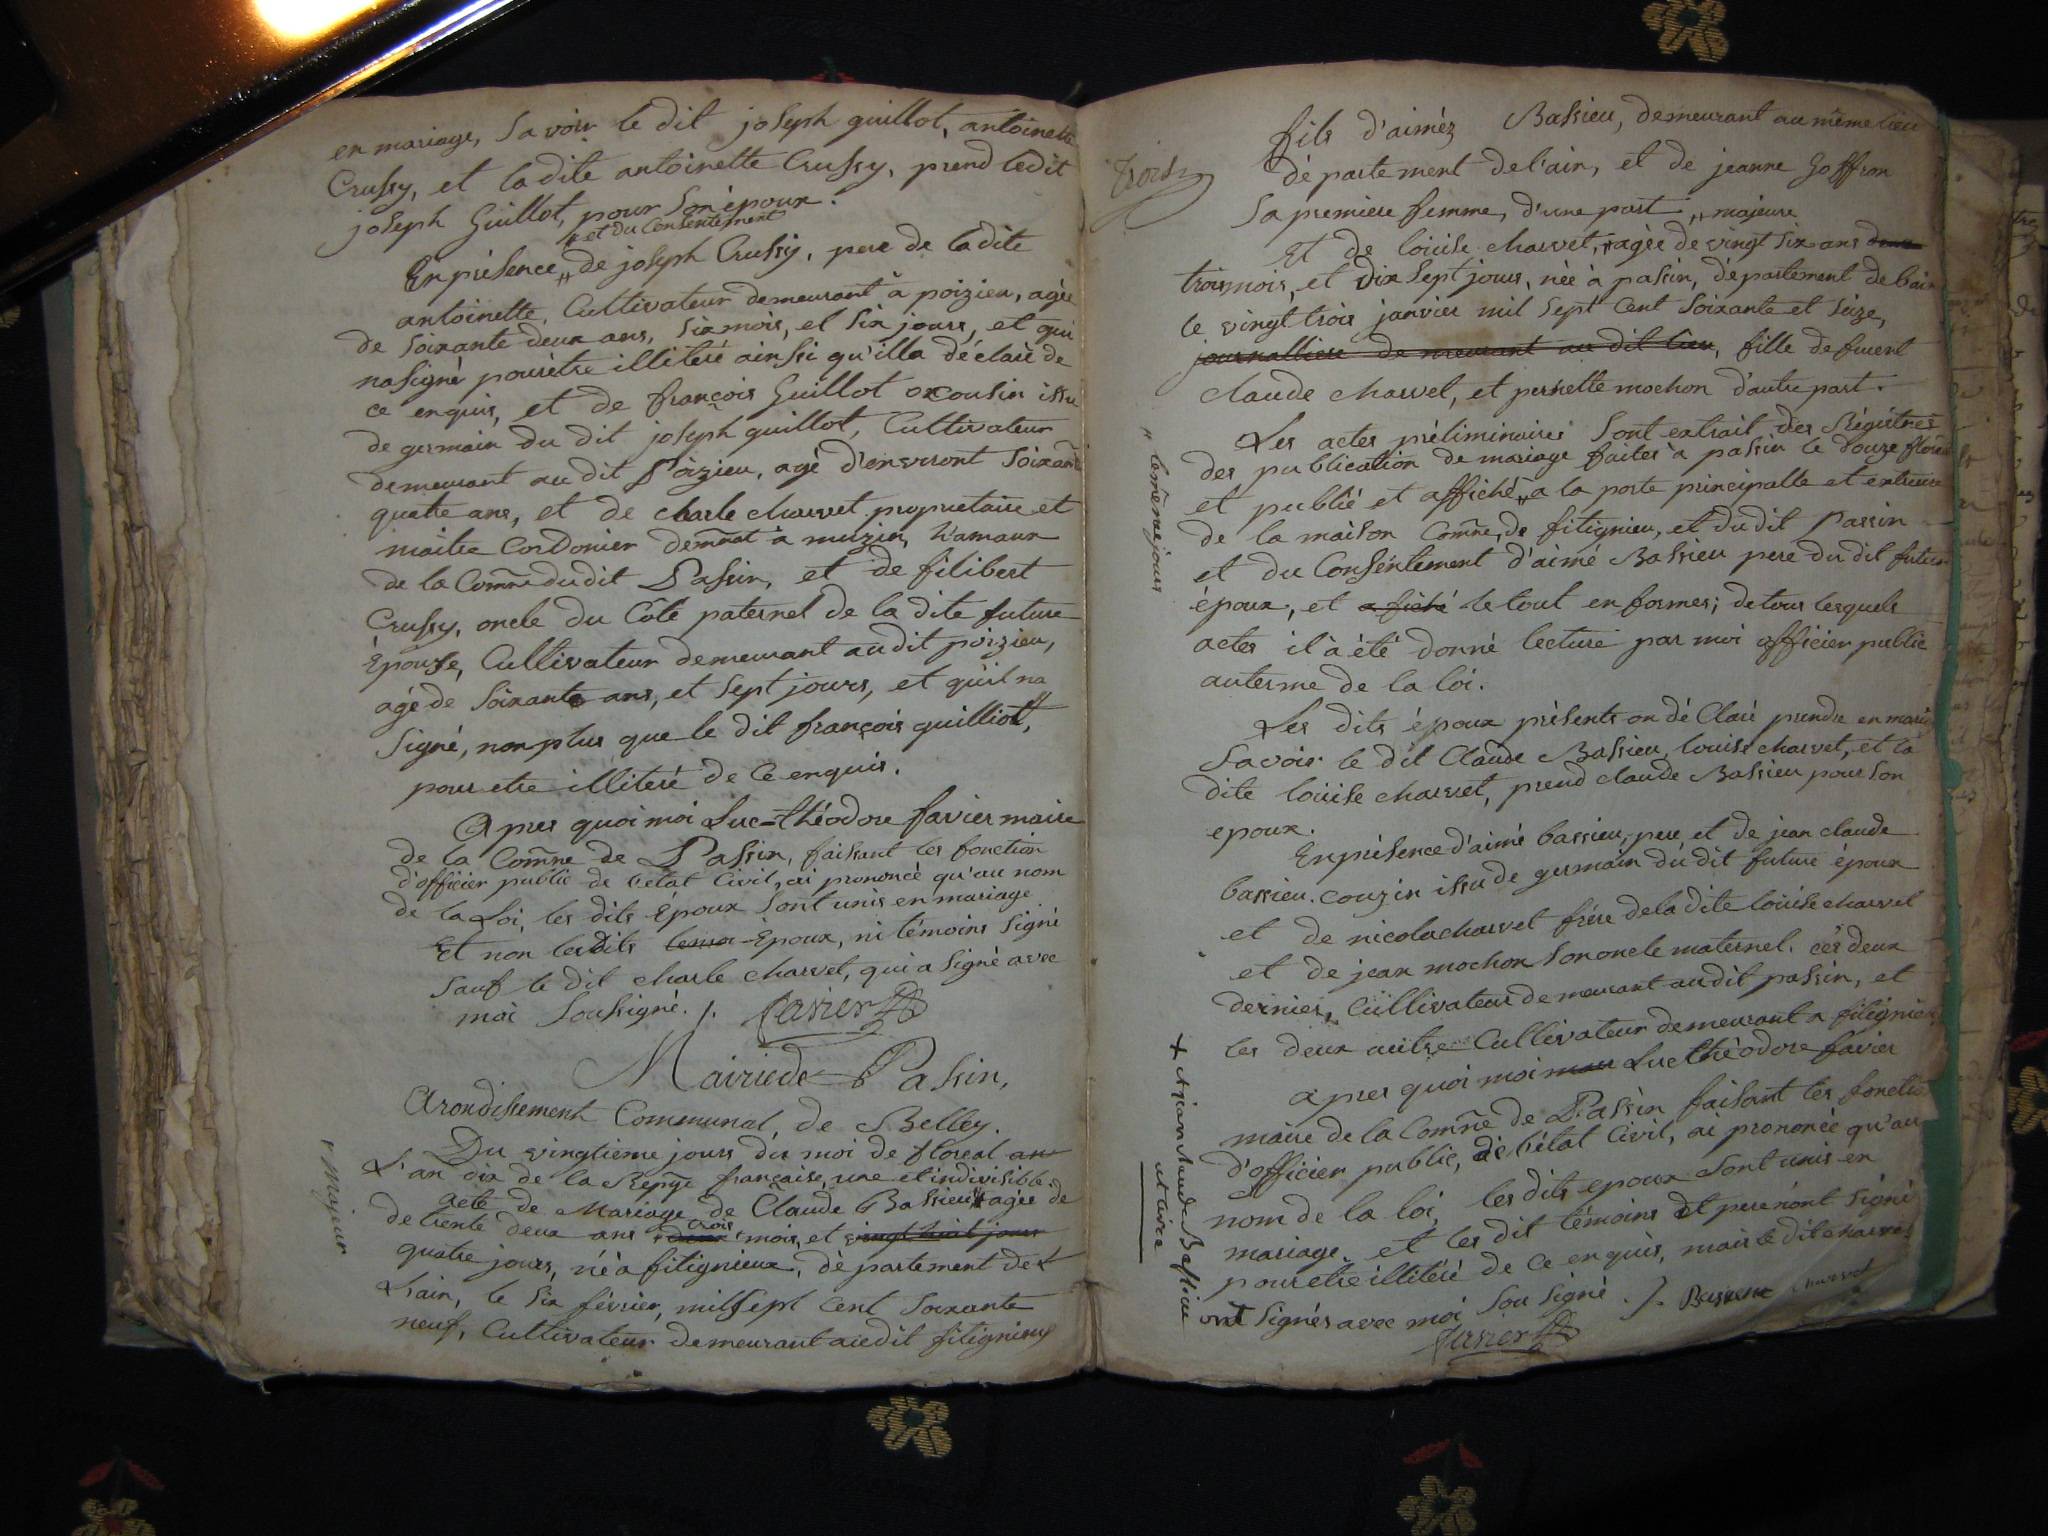 en mariage, Savoir le dit joseph guillot, antoinette
Crussy, et ladite antoinette Crussy, prend ledit
joseph Guillot, pour Son époux.
"et du Consentement
En présence " de joseph Crussy, pere de ladite
antoinette, Cultivateur demeurant à poizieu, agée
de Soixante deux ans, Six mois, et Six jours, et qui
nasigné pourêtre illiteré ainsi qu'illa déclaré de
ce enquis, et de françois Guillot cousin issu
de germain du dit joseph guillot, Cultivateur
demeurant au dit Poizieu, agé d'environt Soixante
quatre ans, et de charle charvet proprietaire et
maitre Cordonier demnt à muzin, hamaux
de la Comne dudit Passin, et de filibert
Crussy, oncle du Côté paternel de la dite future
Epouse, Cultivateur demeurant audit poizieu,
agé de Soixante ans, et Sept jours, et qu'il na
Signé, nonplus que le dit françois guilliot,
pour etre illiteré de Ce enquis.
Apres quoi moi Luc=théodore favier maire
de la Comne de Passin, faisant les fonction
d'officier public de l'etat Civil, ai prononcé qu'au nom
de la Loi, les dits Epoux Sont unis en mariage
Et non lesdits Epoux, ni témoins Signé
Sauf le dit charle charvet, qui a Signé avec
moi Soussigné. /. favier
Mairie de Passin,
Arondissement Communal, de Belley.
Du vingtieme jours du moi de floreal an
L'an dix de la Repque française, une et indivisible.
acte de Mariage de Claude Bassieu agée de
"majeur
trois
de trente deux ans deux mois, et vingt huit jours
quatre jours, né a fitignieux, département de
L'ain, le Six février, mil Sept Cent Soixante
neuf, Cultivateur demeurant audit fitignieux
fils d'aimez Bassieu, demeurant au même lieu
département de l'ain, et de jeanne Goffron
Sa premiere femme, d'une part
" majeure
Et de louise charvet, " agée de vingt Six ans
trois mois, et dix Sept jours, née à passin, département de l'ain
le vingt trois janvier mil Sept Cent Soixante et Seize,
journalliere demeurant au dit lieu, fille de fuent
claude charvet, et pernette mochon d'autre part.
Les actes préliminaires Sont extrait des Régistres
des publication de mariage faites à passin le douze floréal
et publié et affiché " a la porte principalle et extrieure
" le même jours
de la maison Comne, de fitignieu, et du dit Passin
et du Consentement d'aimé Bassieu pere du dit futur
époux, et afiché le tout en formes; detous lesquels
actes il à été donné lecture par moi officier public
auterme de la loi.
Les dits époux présents on dé Claré prendre en mariage
Savoir le dit Claude Bassieu, louise charvet, et la
dite louise charvet, prend claude Bassieu pour Son
epoux.
En présence d'aimé bassieu, pere et de jean claude
bassieu. couzin issu de germain du dit future époux
et de nicola charvet frére dela dite louise charvet
et de jean mochon Son oncle maternel. ces deux
dernier, Cultivateur demeurant audit passin, et
les deux autre Cultivateur demeurant a fitignieu
apres quoi moi Luc théodore favier
maire de la Comne de Passin faisant les fonction
d'officier public, de l'état Civil, ai prononcé qu'au
nom de la loi, les dits epoux Sont unis en
mariage. et les dit témoins et pere n'ont Signé
pour etre illiteré de Ce enquis, mais le dit charvet
+ et jean claude Bassieu
ont Signés avec moi Sousigné. /. Bassieu charvet
favier